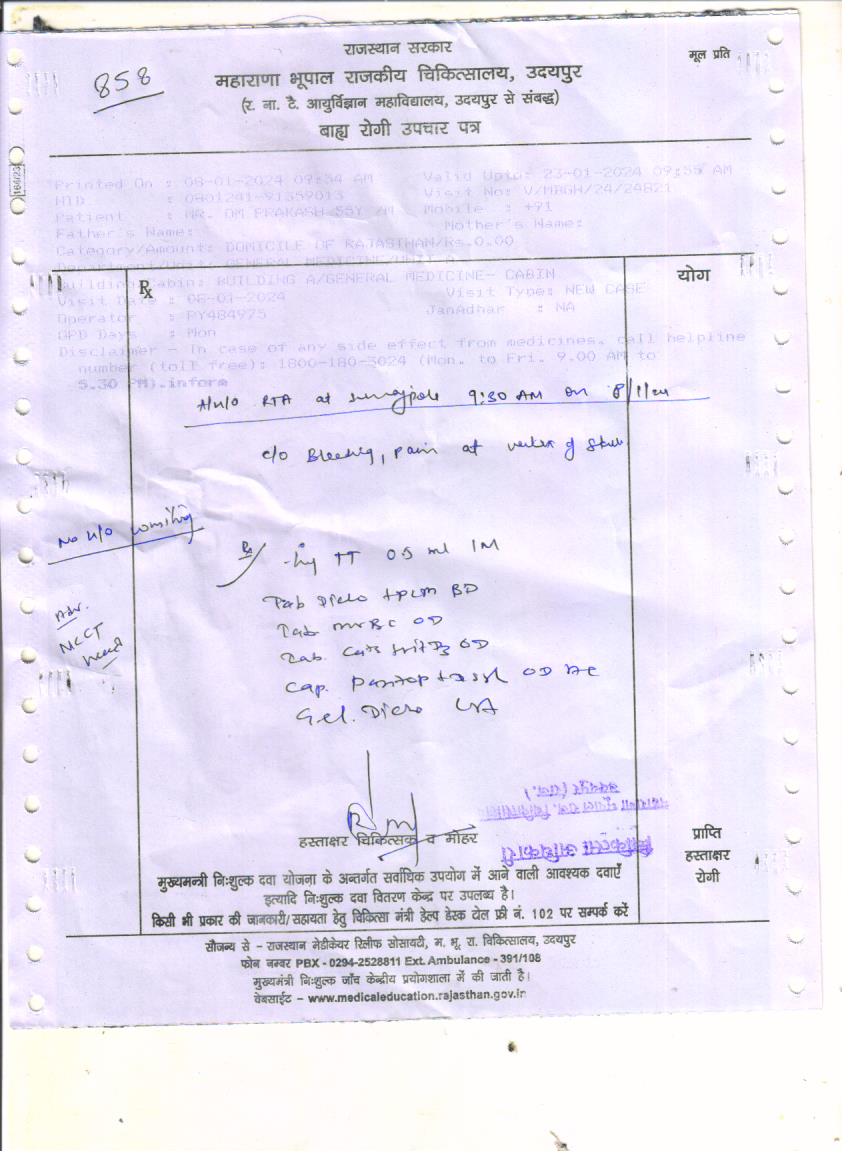 858
राजस्थान सरकार
मूल प्रति
महाराणा भूपाल राजकीय चिकित्सालय, उदयपुर
(र. ना. टै. आयुर्विज्ञान महाविद्यालय, उदयपुर से संबद्ध)
बाह्य रोगी उपचार पत्र
Printed On : 08-01-2024 09:54 AM Valid Upto: 23-01-2024 09:55 AM
HID : 0801241-91359013 Visit No: V/MBGH/24/24821
Patient : MR. OM PRAKASH 55Y /M Mobile : +91
Father's Name: Mother's Name:
Category/Amount: DOMICILE OF RAJASTHAN/Rs.0.00
Department/Unit: GENERAL MEDICINE/UNIT-A
Building/Cabin: BUILDING A/GENERAL MEDICINE- CABIN
Visit Date : 08-01-2024 Visit Type: NEW CASE
Operator : PY484975 JanAdhar : NA
OPD Days : Mon
Disclaimer - In case of any side effect from medicines, call helpline
number (toll free): 1800-180-3024 (Mon. to Fri. 9.00 AM to
5.30 PM).inform
℞
योग
A/H/O RTA at 9:30 AM on 8/1/24
c/o Bleeding, pain at vertex of Skull
No H/O vomiting
Rx
Inj TT 0.5 ml IM
Tab Diclo +pcm BD
Tab MVBC OD
Tab. Cal+ VitD3 OD
Cap. Pantop + DSR OD AC
Gel. Diclo L/A
Adv.
NCCT
Head
हस्ताक्षर चिकित्सक व मोहर
चिकित्सा अधिकारी
प्राप्ति
हस्ताक्षर
रोगी
मुख्यमन्त्री निःशुल्क दवा योजना के अन्तर्गत सर्वाधिक उपयोग में आने वाली आवश्यक दवाएँ
इत्यादि निःशुल्क दवा वितरण केन्द्र पर उपलब्ध है।
किसी भी प्रकार की जानकारी/सहायता हेतु चिकित्सा मंत्री हेल्प डेस्क टोल फ्री नं. 102 पर सम्पर्क करें
सौजन्य से – राजस्थान मेडीकेयर रिलीफ सोसायटी, म. भू. रा. चिकित्सालय, उदयपुर
फोन नम्बर PBX - 0294-2528811 Ext. Ambulance - 391/108
मुख्यमंत्री निःशुल्क जाँच केन्द्रीय प्रयोगशाला में की जाती है।
वेबसाईट – www.medicaleducation.rajasthan.gov.in